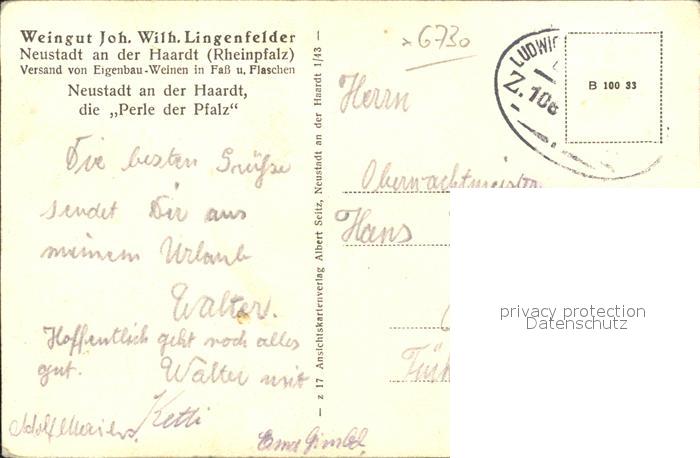 Weingut Joh. Wilh. Lingenfelder
Neustadt an der Haardt (Rheinpfalz)
Versand von Eigenbau-Weinen in Faß u. Flaschen
Neustadt an der Haardt,
die „Perle der Pfalz“
Die besten Grüße
sendet Dir aus
meinem Urlaub
Walter.
Hoffentlich geht noch alles
gut. Walter mit
Ketti
Adolf Maier.
z 17 Ansichtskartenverlag Albert Seitz, Neustadt an der Haardt 1/43
6730
LUDWIG
Z. 108
B 100 33
Herrn
Oberwachtmeister
Hans
privacy protection
Datenschutz